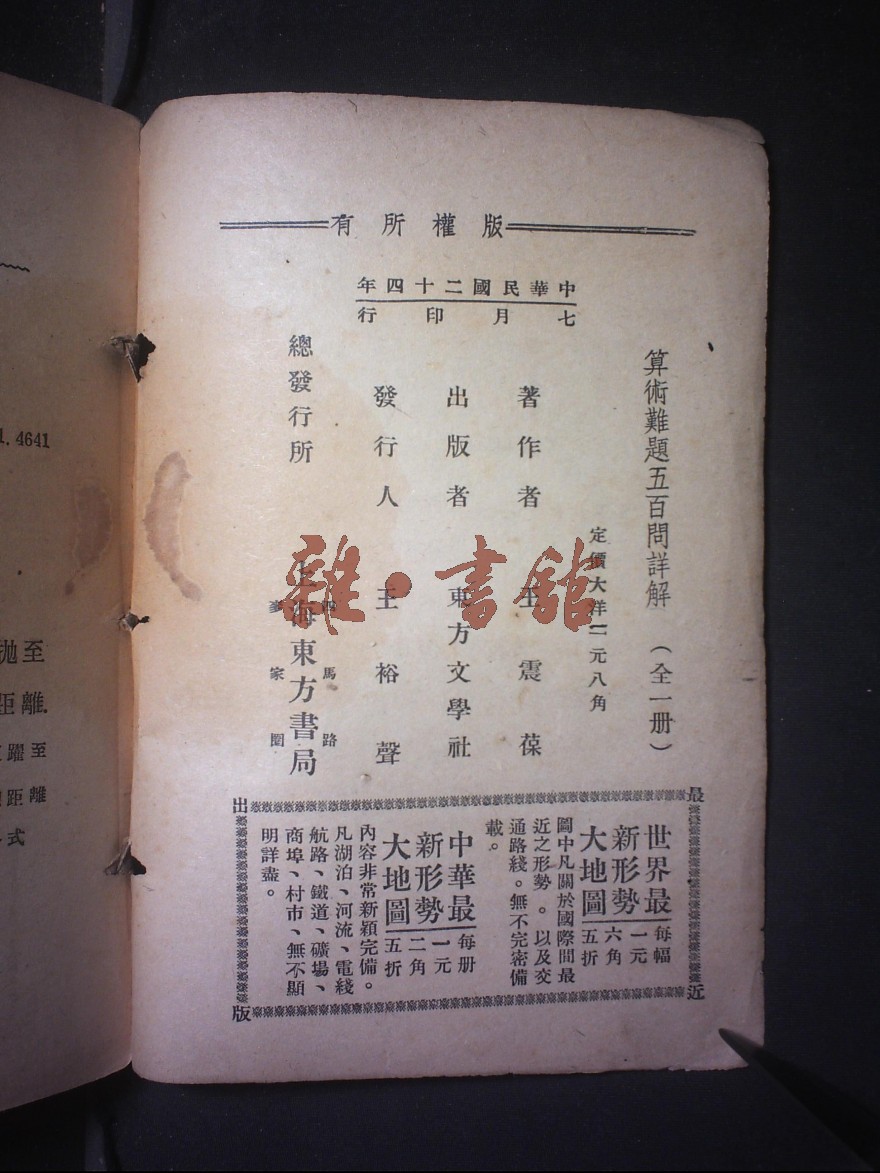 版權所有
中華民國二十四年
七月印行
算術難題五百問詳解（全一册）
定價大洋一元八角
著作者 王震葆
出版者 東方文學社
發行人 王裕聲
總發行所 上海東方書局
四馬路
麥家圈
雜·書館
最近出版
世界最新形勢大地圖
每幅一元六角五折
圖中凡關於國際間最
近之形勢。以及交
通路綫。無不完密備
載。
中華最新形勢大地圖
每册一元二角五折
內容非常新穎完備。
凡湖泊、河流、電綫
航路、鐵道、礦場、
商埠、村市、無不顯
明詳盡。
1. 4641
拋至
距離
躍至
距離
式